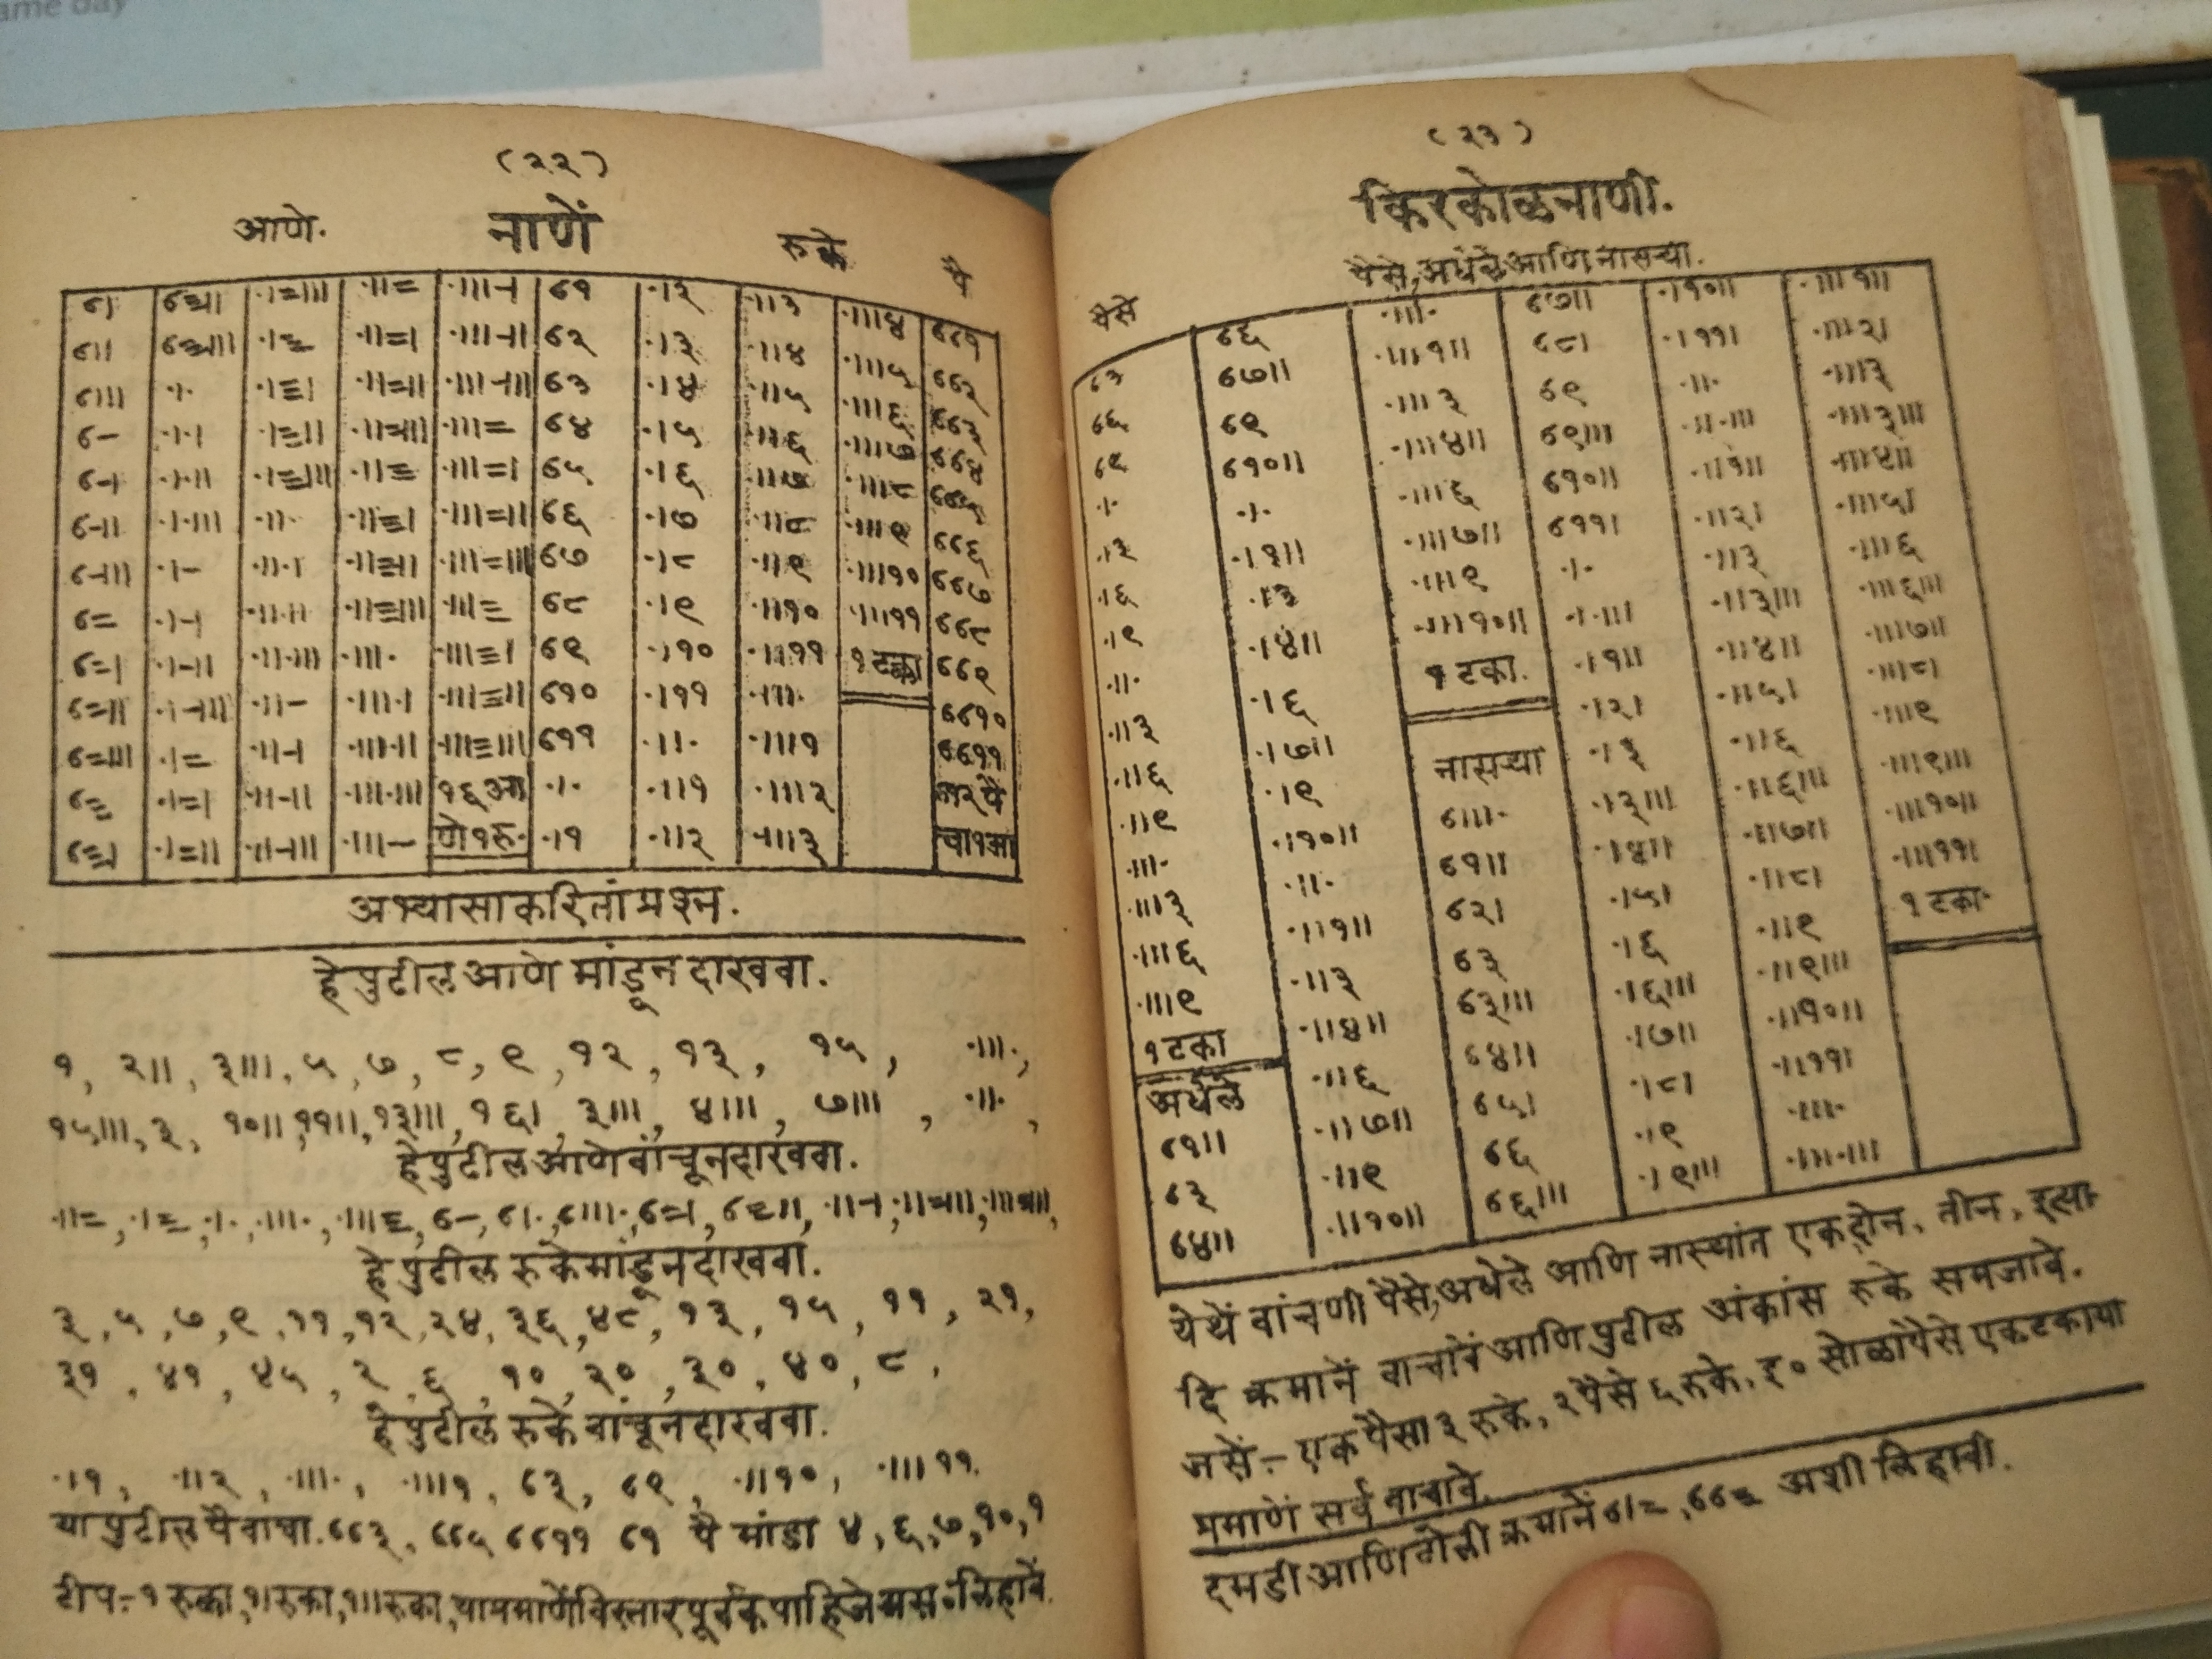 ame day
(२२)
आणे. नाणें रुके पै
६। ·।=॥। ·॥= ·॥।-। ६१ ·१२ ·॥३ ·॥।४ ६६१
६॥ ·॥=। ·॥।-॥ ६२ ·।३ ·॥४ ·॥।५ ६६२
६॥। ·।· ·।≡। ·॥=॥ ·॥।-॥। ६३ ·।४ ·॥५ ·॥।६ ६६३
६- ·।·। ·।≡॥ ·॥=॥। ·॥।= ६४ ·।५ ·॥६ ·॥।७ ६६४
६-। ·।·॥ ·।≡॥। ·॥≡ ·॥।=। ६५ ·।६ ·॥७ ·॥।८ ६६५
६-॥ ·।·॥। ·॥· ·॥≡। ·॥।=॥ ६६ ·।७ ·॥८ ·॥।९ ६६६
६-॥। ·।- ·॥·। ·॥≡॥ ·॥।=॥। ६७ ·।८ ·॥९ ·॥।१० ६६७
६= ·।-। ·॥·॥ ·॥≡॥। ·॥।≡ ६८ ·।९ ·॥१० ·॥।११ ६६८
६=। ·।-॥ ·॥·॥। ·॥।· ·॥।≡। ६९ ·।१० ·॥११ १ टका ६६९
६=॥ ·।-॥। ·॥- ·॥।·। ·॥।≡॥ ६१० ·।११ ·॥।· ६६१०
६=॥। ·।= ·॥-। ·॥।·॥ ·॥।≡॥। ६११ ·॥· ·॥।१ ६६११
६≡ ·।=। ·॥-॥ ·॥।·॥। १६ आ ·।· ·॥१ ·॥।२
६≡। ·।=॥ ·॥-॥। ·॥।- णे १ रु. ·।१ ·॥२ ·॥।३ चा १ आ
अभ्यासाकरितां प्रश्न.
हे पुढील आणे मांडून दाखवा.
१, २॥, ३॥।, ५, ७, ८, ९, १२, १३, १५, ·॥।·,
१५॥।, ३, १०॥, ११॥, १३॥।, १६।, ३॥।, ४॥।, ७॥।, ·॥·,
हे पुढील आणे वांचून दाखवा.
·॥=, ·।≡, ·।·, ·॥।·, ·॥।≡, ६-, ६।·, ६॥।·,
हे पुढील रुके मांडून दाखवा.
३, ५, ७, ९, ११, १२, २४, ३६, ४८, १३, १५, ११, २१,
३१, ४१, ४५, २, ६, १०, २०, ३०, ४०, ८,
हे पुढील रुके वांचून दाखवा.
·।१, ·॥२, ·॥।·, ·॥।१, ६३, ६९, ·॥१०, ·॥।११.
या पुढील पै वाचा. ६६३, ६६५ ६६११ ६१ पै मांडा ४, ६, ७, १०, १
टीप:- १ रुका, १। रुका, १॥ रुका, या प्रमाणें विस्तार पूर्वक पाहिजे लिहावें.
(२३)
किरकोळ नाणी.
पैसे, अधेले आणि नासऱ्या.
पैसे
६३ ६६ ·॥।· ६७॥ ·।१०॥ ·॥।१॥
६६ ६७॥ ·॥।१॥ ६८। ·।११। ·॥।२।
६९ ६९ ·॥।३ ६९ ·॥· ·॥।३
·।· ६१०॥ ·॥।४॥ ६९॥। ·॥·॥। ·॥।३॥।
·।३ ·।· ·॥।६ ६१०॥ ·॥१॥ ·॥।४॥
·।६ ·।१॥ ·॥।७॥ ६११। ·॥२। ·॥।५।
·।९ ·।३ ·॥।९ ·।· ·॥३ ·॥।६
·॥· ·।४॥ ·॥।१०॥ ·।·॥। ·॥३॥। ·॥।६॥।
·॥३ ·।६ १ टका. ·।१॥ ·॥४॥ ·॥।७॥
·॥६ ·।७॥ नासऱ्या ·।२। ·॥५। ·॥।८।
·॥९ ·।९ ६॥।· ·।३ ·॥६ ·॥।९
·॥।· ·।१०॥ ६१॥ ·।३॥। ·॥६॥। ·॥।९॥।
·॥।३ ·॥· ६२। ·।४॥ ·॥७॥ ·॥।१०॥
·॥।६ ·॥१॥ ६३ ·।५। ·॥८। ·॥।११।
·॥।९ ·॥३ ६३॥। ·।६ ·॥९ १ टका.
१ टका ·॥४॥ ६४॥ ·।६॥। ·॥९॥।
अधेले ·॥६ ६५। ·।७॥ ·॥१०॥
६१॥ ·॥७॥ ६६ ·।८। ·॥११।
६३ ·॥९ ६६॥। ·।९ ·॥।·
६४॥ ·॥१०॥ ·।९॥। ·॥।·॥।
येथें वांचणी पैसे, अधेले आणि नासऱ्यांत एक, दोन, तीन, इत्या-
दि क्रमानें वाचावें आणि पुढील अंकांस रुके समजावे.
जसें:- एक पैसा ३ रुके, २ पैसे ६ रुके, इ० सोळा पैसे एक टका या
प्रमाणें सर्व वाचावे.
दमडी आणि क्रमानें ६।=, ६६= अशी लिहावी.